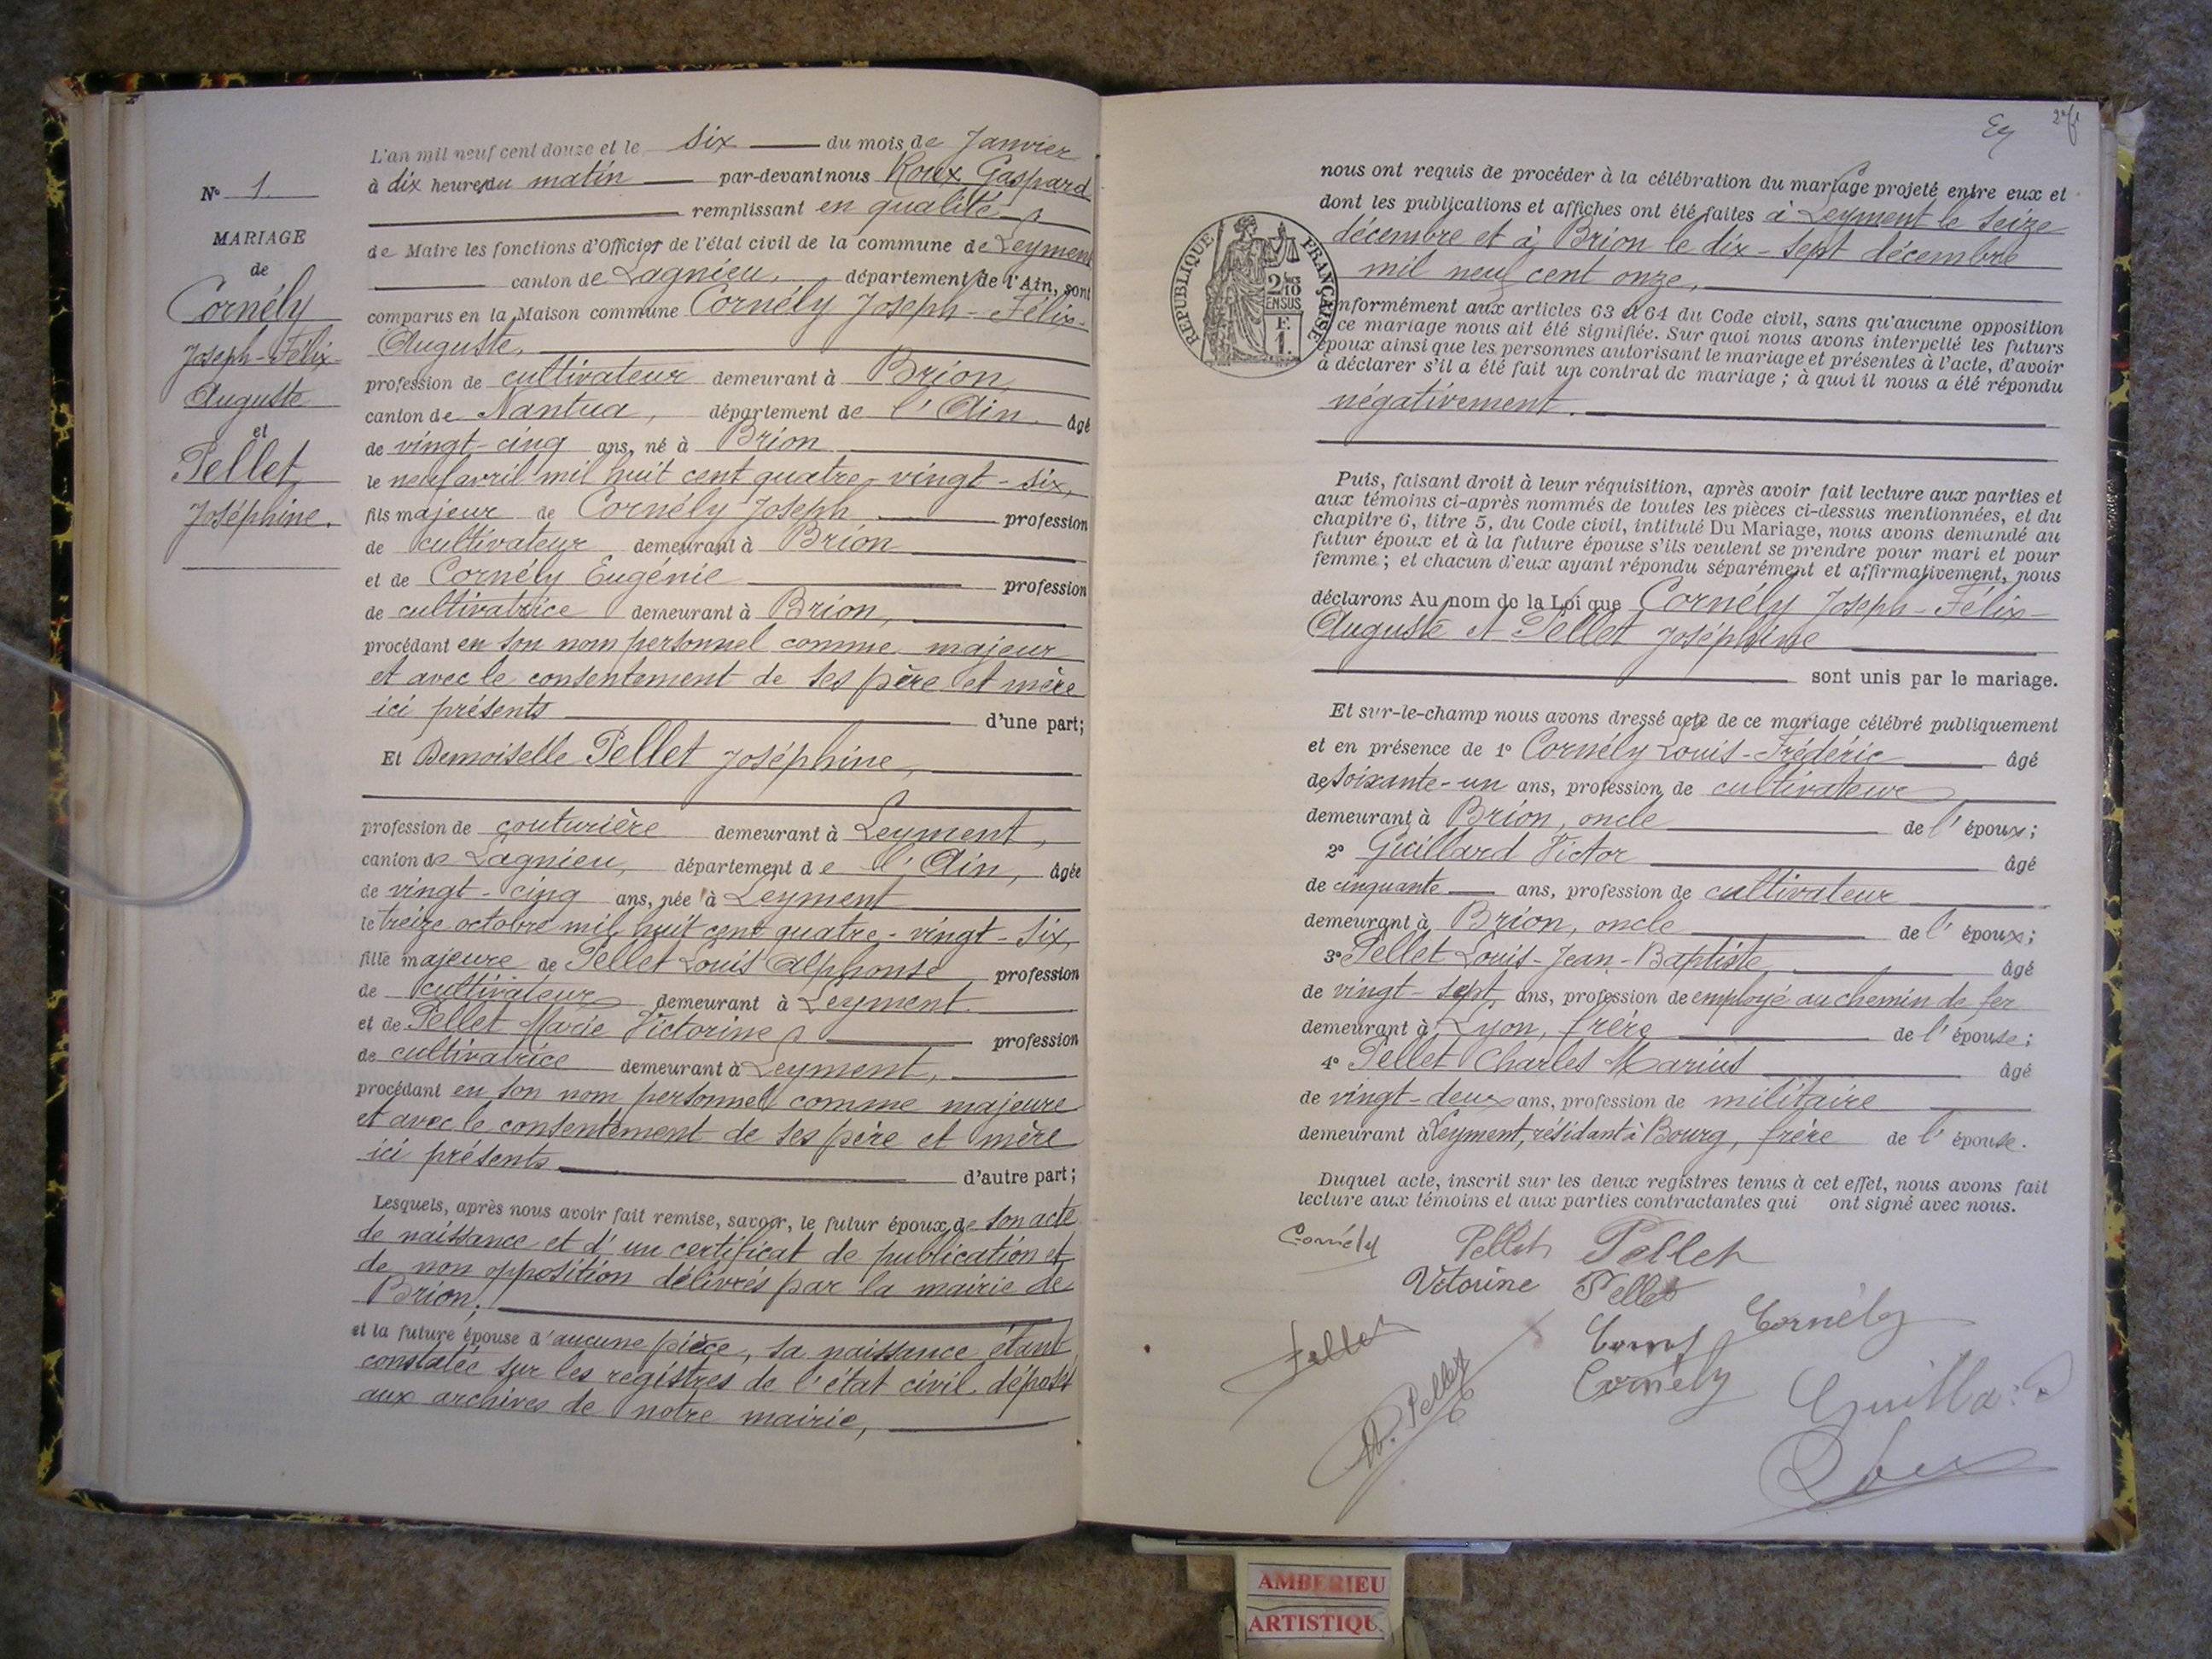 N° 1.
MARIAGE
de
Cornély
Joseph-Félix-
Auguste
et
Pellet
Joséphine.
L'an mil neuf cent douze et le six du mois de Janvier
à dix heures du matin par-devant nous Roux Gaspard
remplissant en qualité
de Maire les fonctions d'Officier de l'état civil de la commune de Leyment
canton de Lagnieu, département de l'Ain, sont
comparus en la Maison commune Cornély Joseph-Félix-
Auguste,
profession de cultivateur demeurant à Brion
canton de Nantua, département de l'Ain, âgé
de vingt-cinq ans, né à Brion
le neuf avril mil huit cent quatre-vingt-six,
fils majeur de Cornély Joseph profession
de cultivateur demeurant à Brion
et de Cornély Eugénie profession
de cultivatrice demeurant à Brion,
procédant en son nom personnel comme majeur
et avec le consentement de ses père et mère
ici présents d'une part;
Et Demoiselle Pellet Joséphine,
profession de couturière demeurant à Leyment,
canton de Lagnieu, département de l'Ain, âgée
de vingt-cinq ans, née à Leyment
le treize octobre mil huit cent quatre-vingt-six,
fille majeure de Pellet Louis Alphonse, profession
de cultivateur demeurant à Leyment.
et de Pellet Marie Victorine profession
de cultivatrice demeurant à Leyment,
procédant en son nom personnel comme majeure
et avec le consentement de ses père et mère
ici présents d'autre part;
Lesquels, après nous avoir fait remise, savoir, le futur époux, de son acte
de naissance et d'un certificat de publication et
de non opposition délivrés par la mairie de
Brion;
et la future épouse d'aucune pièce, sa naissance étant
constatée sur les registres de l'état civil déposés
aux archives de notre mairie,
nous ont requis de procéder à la célébration du mariage projeté entre eux et
dont les publications et affiches ont été faites à Leyment le seize
décembre et à Brion le dix-sept décembre
mil neuf cent onze,
RÉPUBLIQUE FRANÇAISE
2/10
EN SUS
F.
1.
nformément aux articles 63 et 64 du Code civil, sans qu'aucune opposition
ce mariage nous ait été signifiée. Sur quoi nous avons interpellé les futurs
époux ainsi que les personnes autorisant le mariage et présentes à l'acte, d'avoir
à déclarer s'il a été fait un contrat de mariage; à quoi il nous a été répondu
négativement.
Puis, faisant droit à leur réquisition, après avoir fait lecture aux parties et
aux témoins ci-après nommés de toutes les pièces ci-dessus mentionnées, et du
chapitre 6, titre 5, du Code civil, intitulé Du Mariage, nous avons demandé au
futur époux et à la future épouse s'ils veulent se prendre pour mari et pour
femme; et chacun d'eux ayant répondu séparément et affirmativement, nous
déclarons Au nom de la Loi que Cornély Joseph-Félix-
Auguste et Pellet Joséphine
sont unis par le mariage.
Et sur-le-champ nous avons dressé acte de ce mariage célébré publiquement
et en présence de 1° Cornély Louis-Frédéric âgé
de soixante-un ans, profession de cultivateur
demeurant à Brion, oncle de l'époux;
2° Guillard Victor âgé
de cinquante ans, profession de cultivateur
demeurant à Brion, oncle de l'époux;
3° Pellet Louis-Jean-Baptiste âgé
de vingt-sept ans, profession de employé au chemin de fer
demeurant à Lyon, frère de l'épouse;
4° Pellet Charles Marius âgé
de vingt-deux ans, profession de militaire
demeurant à Leyment, résidant à Bourg, frère de l'épouse.
Duquel acte, inscrit sur les deux registres tenus à cet effet, nous avons fait
lecture aux témoins et aux parties contractantes qui ont signé avec nous.
Cornély Pellet Pellet
Vitorine Pellet
Pellet Cornély
Pellet Cornély
Roux
AMBERIEU
ARTISTIQU